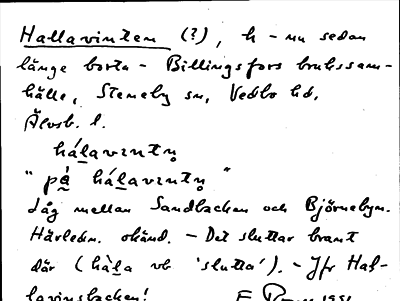 Hallavinten (?), h - nu sedan
länge borta - Billingsfors brukssam-
hälle, Steneby sn, Vedbo hd,
Älvsb. l.
hálavıntn̥
"på hálavıntn̥"
Låg mellan Sandbacken och Björnebyn.
Härledn. okänd. - Det sluttar brant
där (håla vb 'slutta'). - Jfr Hal-
lavinsbacken!